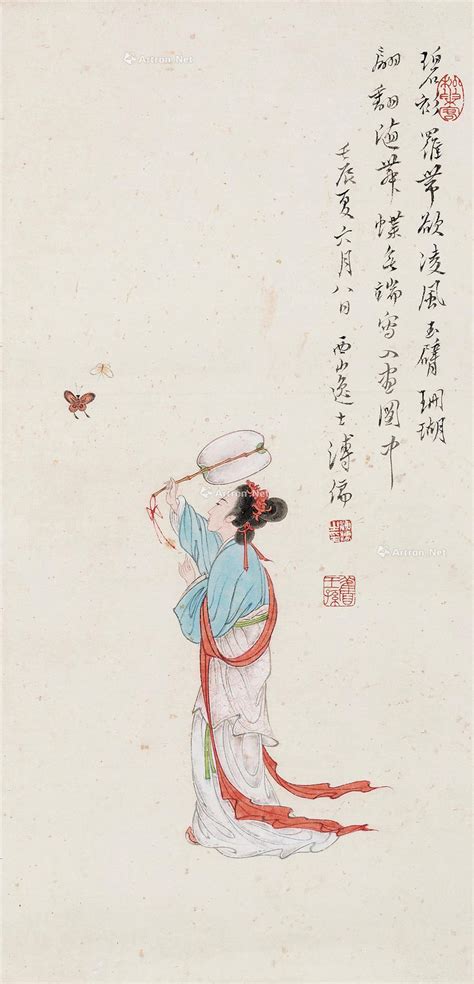 碧衫羅帶欲凌風玉臂珊瑚
翩翻舞蝶無端寫入畫圖中
壬辰夏六月八日 西山逸士溥儒
舊王孫
Artron.Net
Artron.Net
Artron.Net
Artron.Net